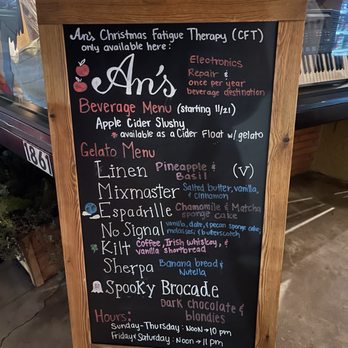 An's Christmas Fatigue Therapy (CFT)
only available here:
An's
Electronics
Repair &
once per year
beverage destination
Beverage Menu (starting 11/21)
Apple Cider Slushy
* available as a Cider Float w/ gelato
Gelato Menu
Linen Pineapple & Basil (V)
Mixmaster Salted butter, vanilla, & cinnamon
Espadrille Chamomile & Matcha sponge cake
No Signal vanilla, date, & pecan sponge cake molasses & butterscotch
Kilt Coffee, Irish whiskey, & vanilla shortbread
Sherpa Banana bread & Nutella
Spooky Brocade
Dark chocolate & blondies
Hours:
Sunday-Thursday: Noon → 10 pm
Friday & Saturday: Noon → 11 pm
1861